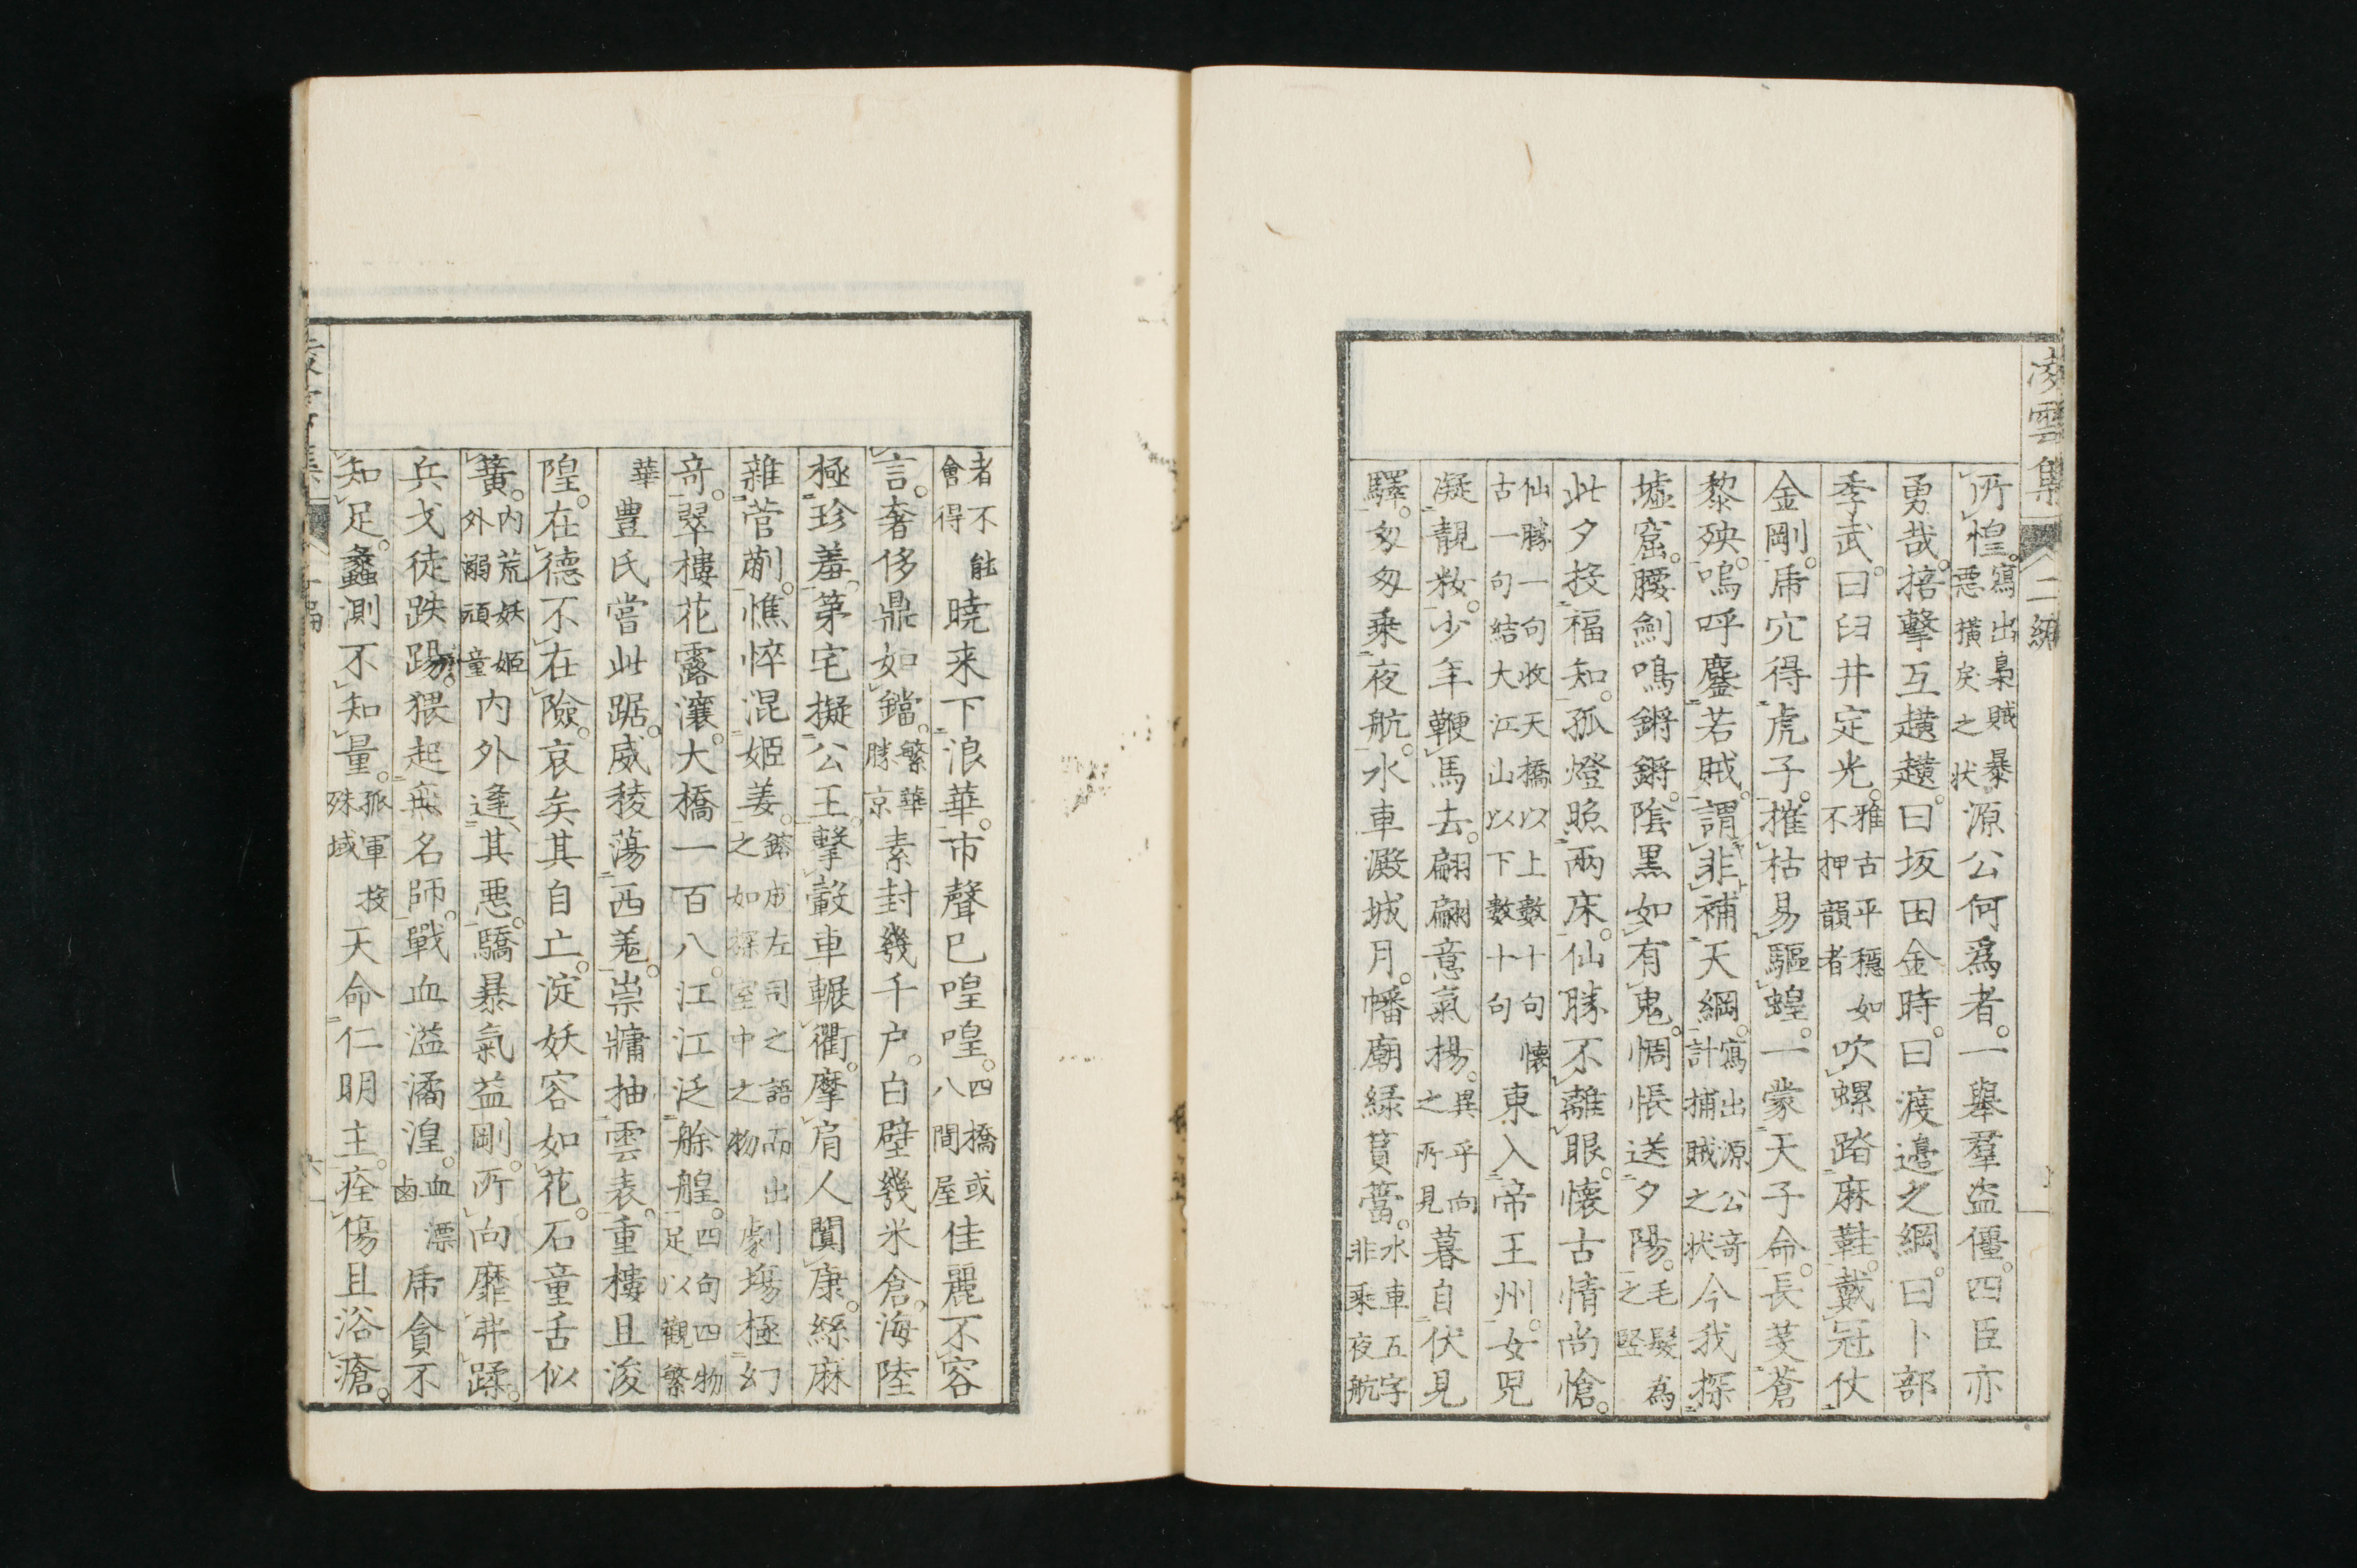 凌雲集 二編
所惶。寫出梟賊暴悪横戾之状源公何爲者。一舉羣盗僵。四臣亦
勇哉。掊擊互趪趪。曰坂田金時。曰渡邉之綱。曰卜部
季武。曰臼井定光。雅古平穏如不押韻者吹螺踏麻鞋。戴冠仗
金剛。乕穴得虎子。摧枯易驅蝗。一蒙天子命。長芟蒼
黎殃。嗚呼鏖若賊。謂非補天綱。寫出源公奇計捕賊之状今我探
墟窟。腰劍鳴鏘鏘。陰黒如有鬼。惆悵送夕陽。毛髮為之竪
此夕投福知。孤燈照兩床。仙勝不離眼。懷古情尚愴。
仙勝一句收天橋以上數十句懐古一句結大江山以下數十句東入帝王州。女児
凝靚粧。少年鞭馬去。翩翩意氣揚。異乎向之所見暮自伏見
驛。匆匆乗夜航。水車澱城月。幡廟緑篔簹。水車五字非乗夜航
者不能會得曉来下浪華。市聲已喤喤。四橋或八間屋佳麗不容
言。奢侈鼎如鐺。繁華勝京素封幾千户。白壁幾米倉。海陸
極珍羞。第宅擬公王。擊轂車輾衢。摩肩人闐康。絲麻
雜菅蒯。憔悴混姫姜。鎔成左司之語而出之如探室中之物劇塲極幻
奇。翠樓花露瀼。大橋一百八。江江泛艅艎。四句四物足以觀繁
華豊氏嘗此踞。威稜蕩西羗。崇牗抽雲表。重樓且浚
隍。在德不在險。哀矣其自亡。淀妖容如花。石童舌似
簧。内荒妖姫外溺頑童内外逢其悪。驕暴氣益剛。所向靡弗蹂。
兵戈徒跌踼。猥起無名師。戰血溢潏湟。血漂鹵乕貪不
知足。蠡測不知量。孤軍投殊域天命仁明主。痊傷且浴瘡。